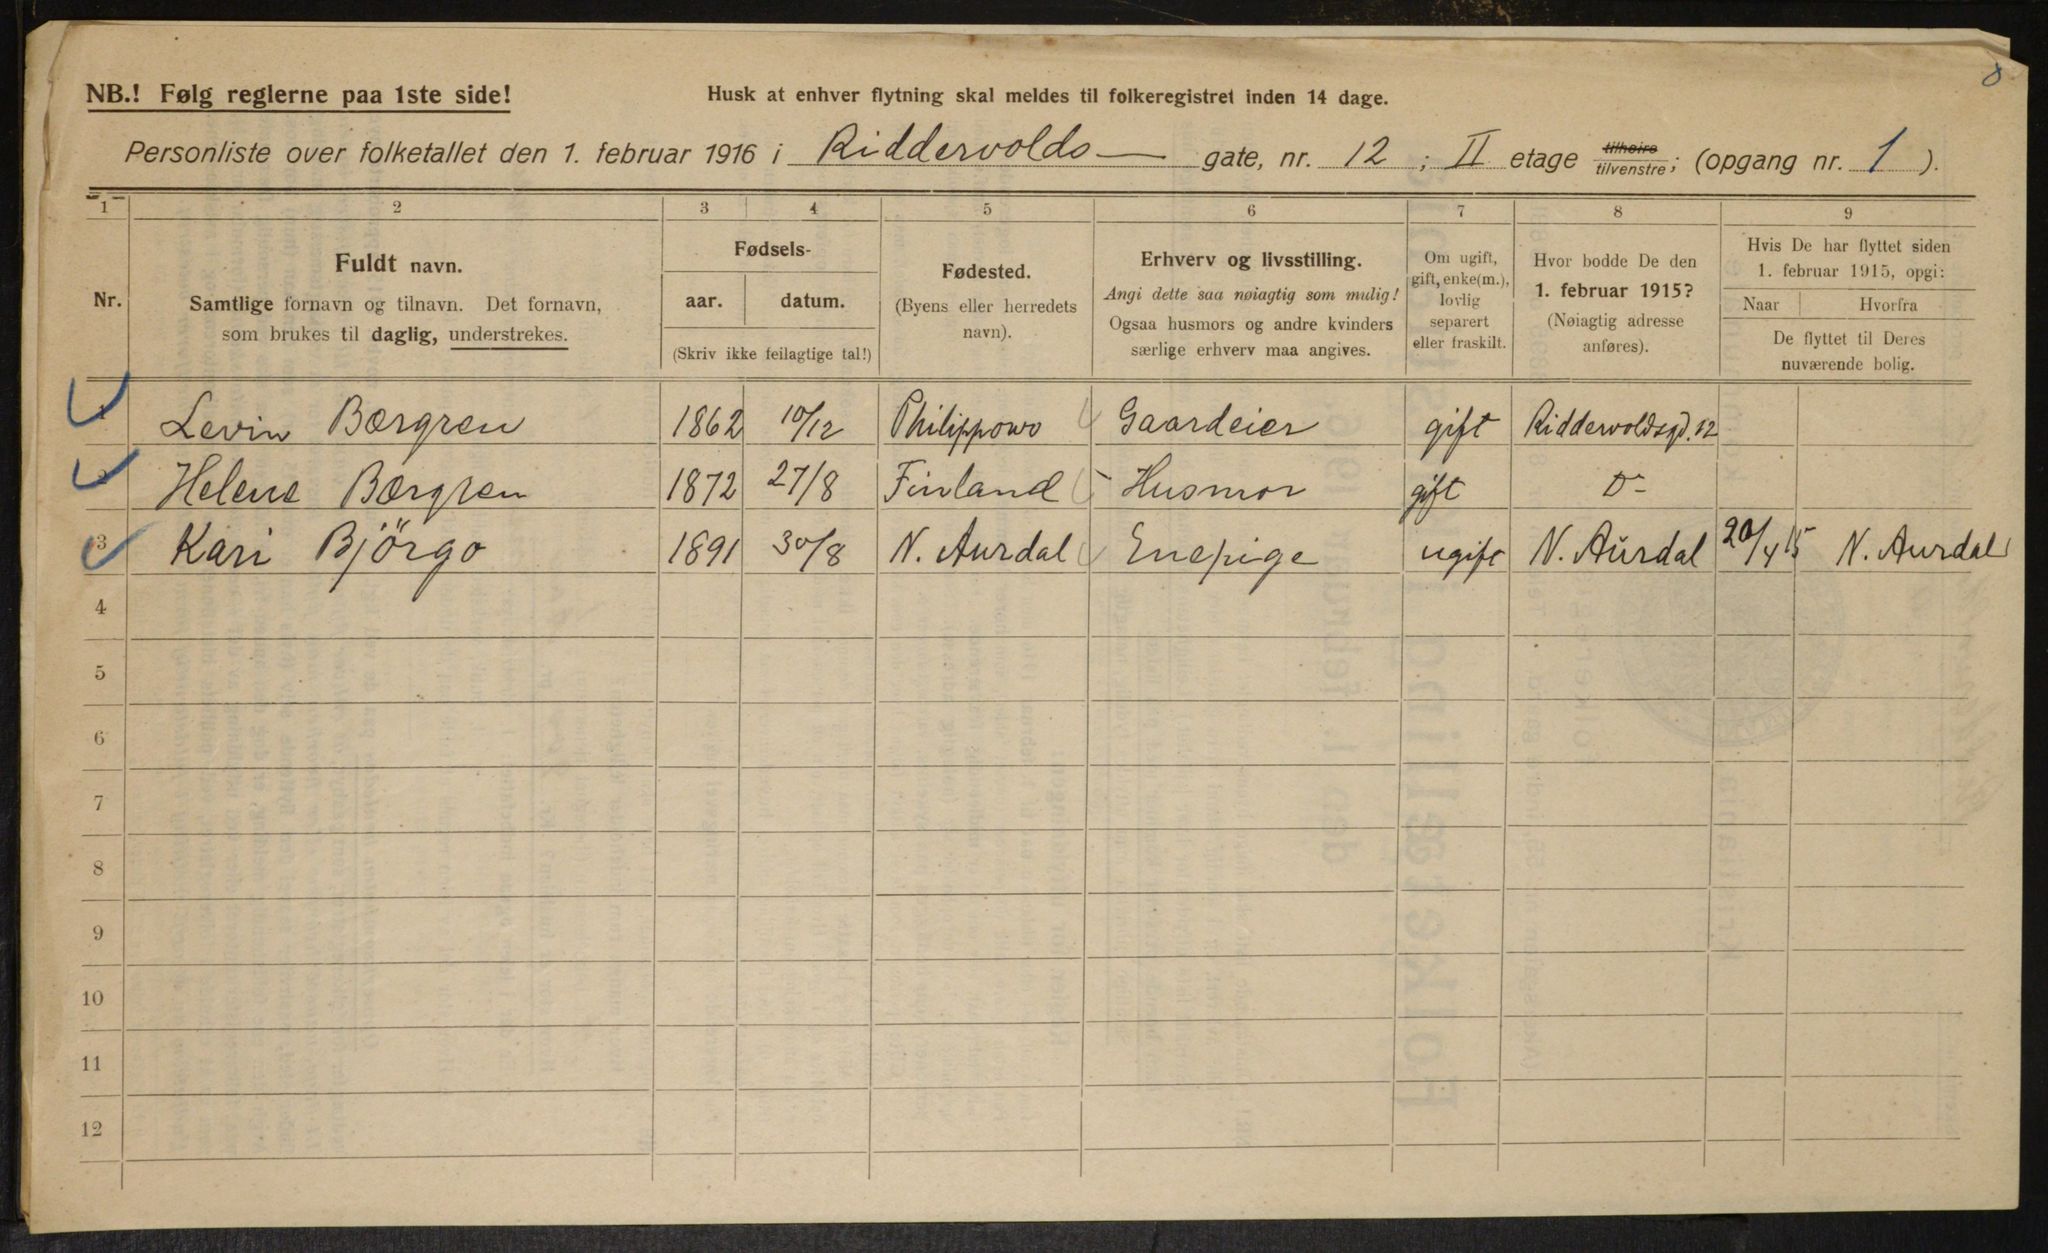 NB.! Følg reglerne paa 1ste side!
Husk at enhver flytning skal meldes til folkeregistret inden 14 dage.
Personliste over folketallet den 1. februar 1916 i Riddervolds gate, nr. 12; II etage tilhøire tilvenstre; (opgang nr. 1).
1 2 3 4 5 6 7 8 9
Nr.
Fuldt navn.
Samtlige fornavn og tilnavn. Det fornavn,
som brukes til daglig, understrekes.
Fødsels-
aar. datum.
(Skriv ikke feilagtige tal!)
Fødested.
(Byens eller herredets
navn).
Erhverv og livsstilling.
Angi dette saa nøiagtig som mulig!
Ogsaa husmors og andre kvinders
særlige erhverv maa angives.
Om ugift,
gift, enke(m.),
lovlig
separert
eller fraskilt.
Hvor bodde De den
1. februar 1915?
(Nøiagtig adresse
anføres).
Hvis De har flyttet siden
1. februar 1915, opgi:
Naar Hvorfra
De flyttet til Deres
nuværende bolig.
1 Levin Bærgren 1862 10/12 Philippowo Gaardeier gift Riddervoldsgd. 12
2 Helene Bærgren 1872 27/8 Finland Husmor gift Do
3 Kari Björgo 1891 30/8 N. Aurdal Enepige ugift N. Aurdal 20/4 15 N. Aurdal
4
5
6
7
8
9
10
11
12